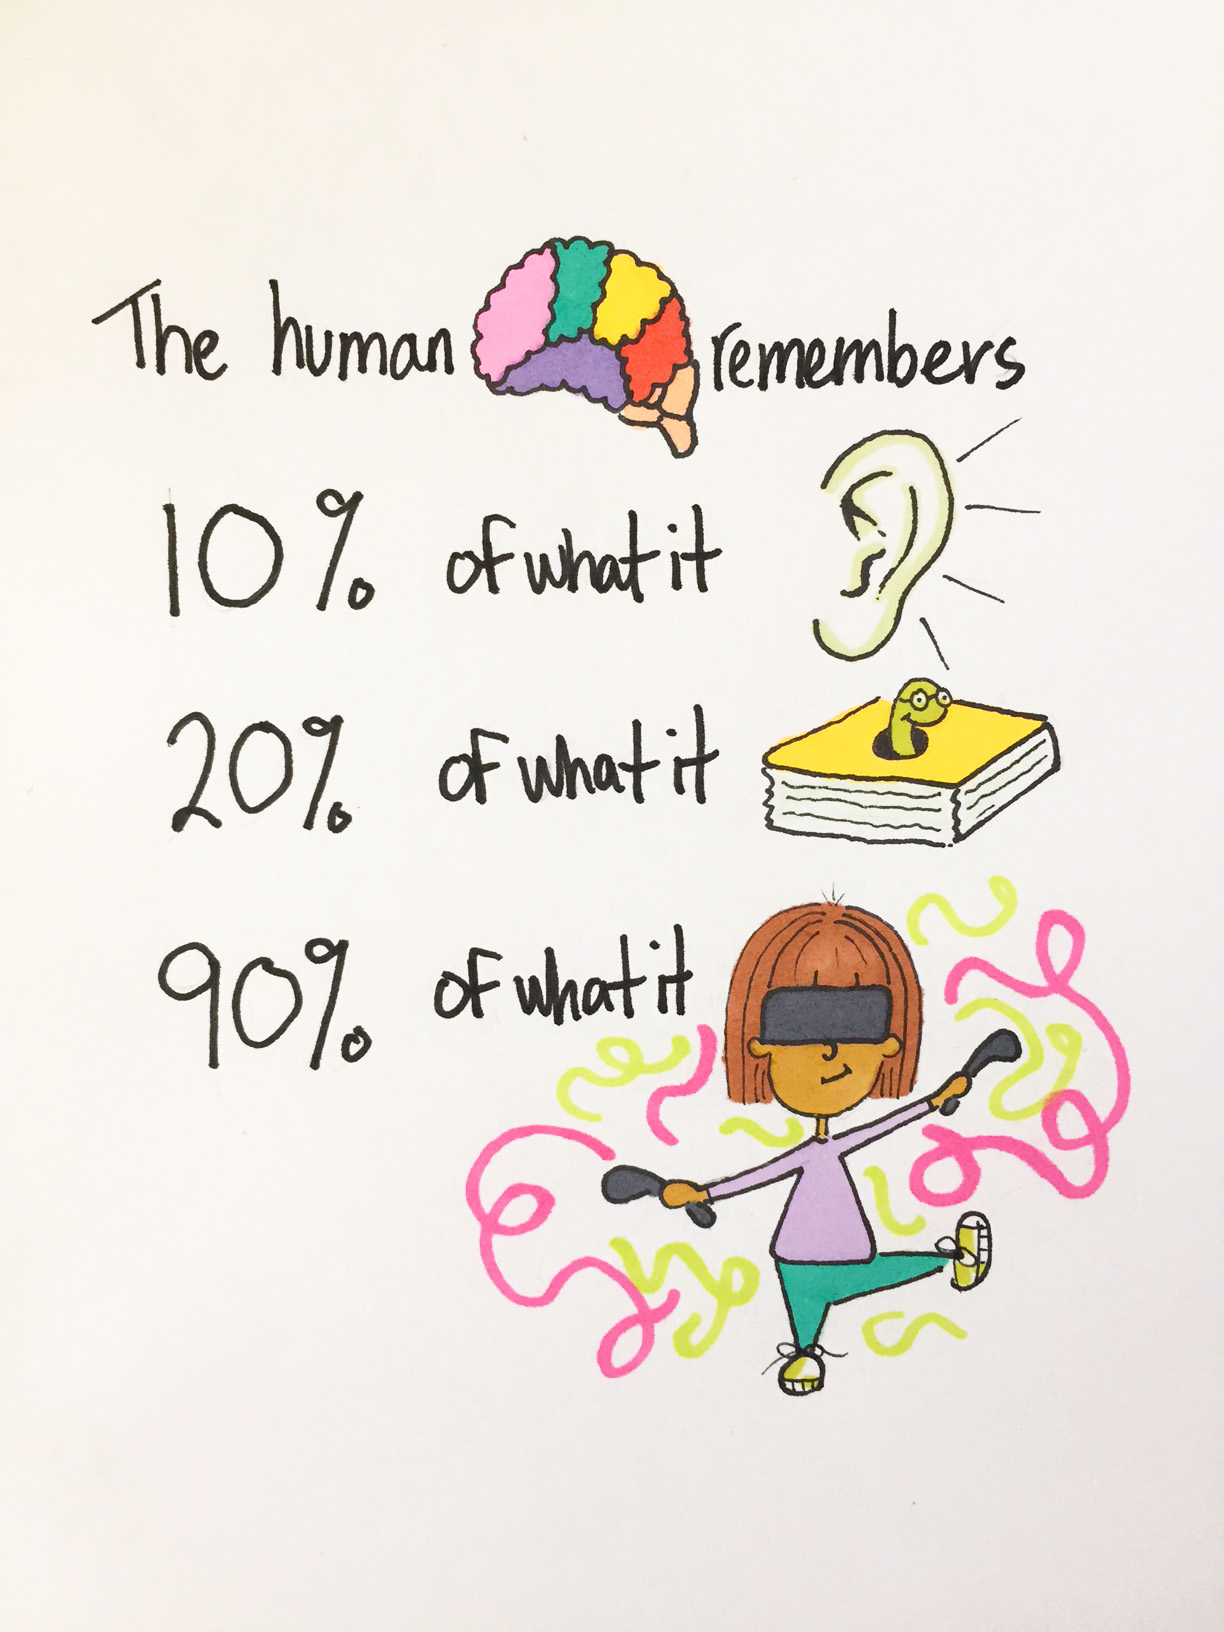 The human remembers
10% of what it
20% of what it
90% of what it